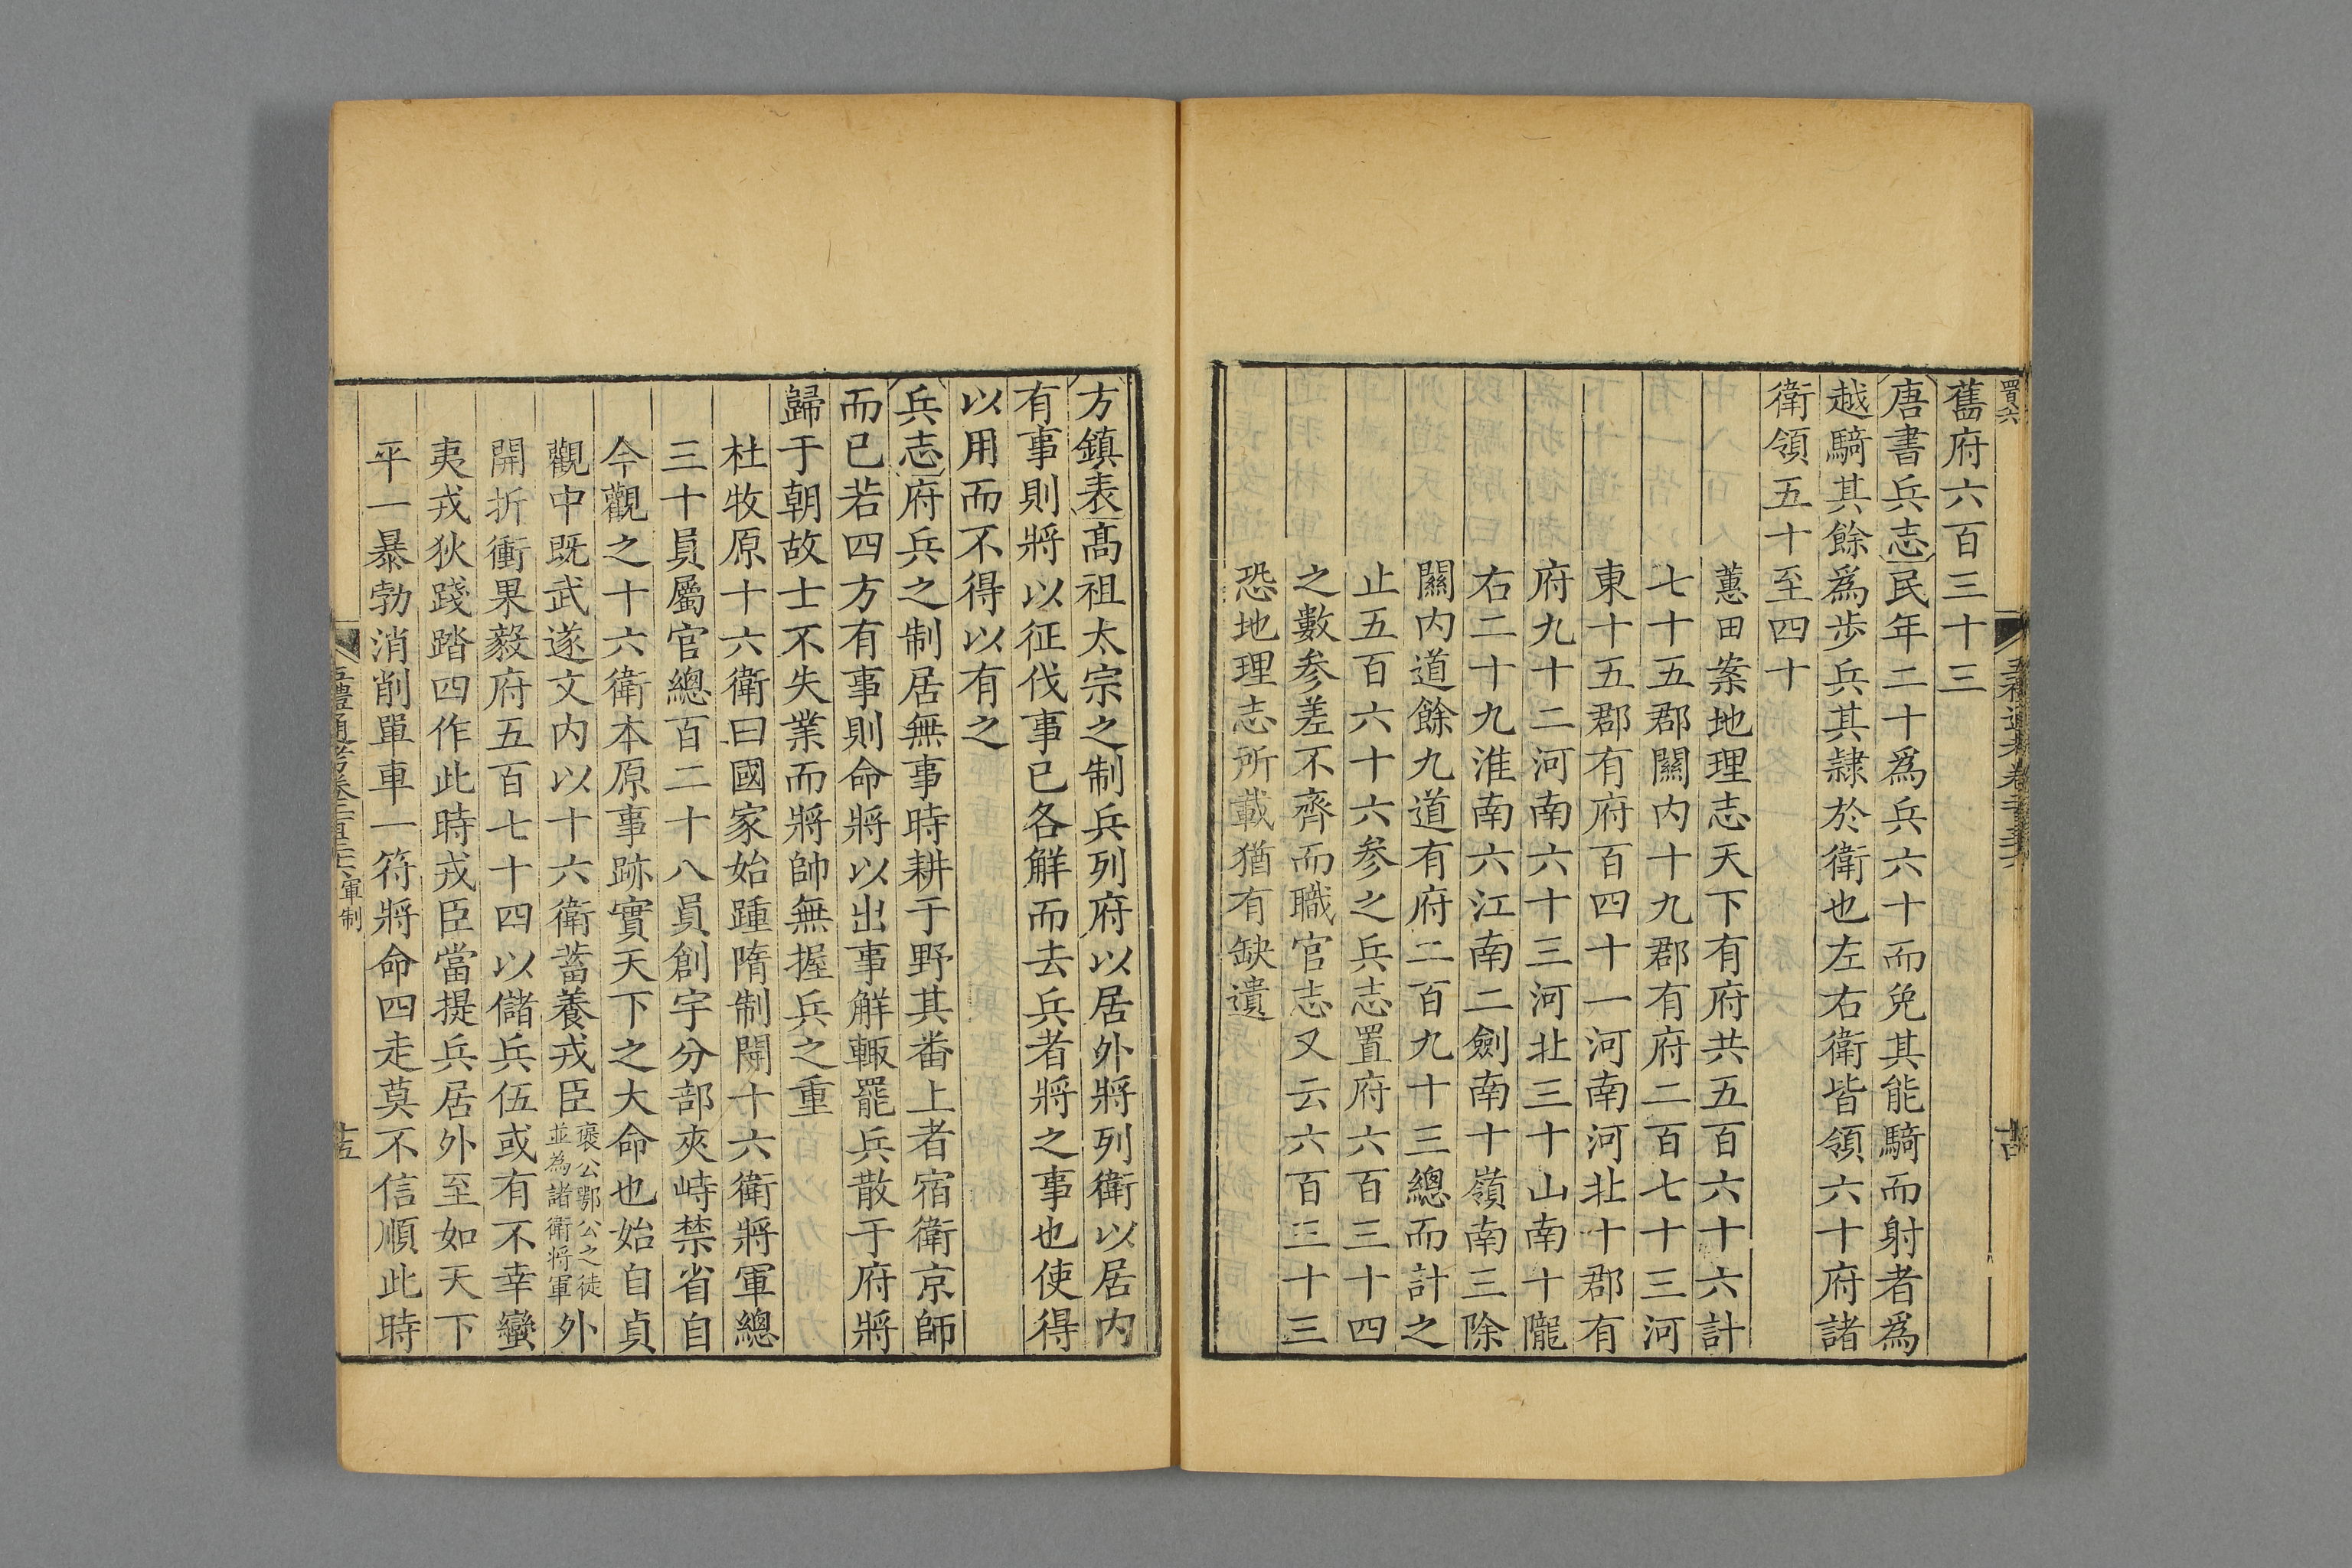 舊府六百三十三
唐書兵志民年二十爲兵六十而免其能騎而射者爲
越騎其餘爲步兵其隸於衛也左右衛皆領六十府諸
衛領五十至四十
蕙田案地理志天下有府共五百六十六計
七十五郡關内十九郡有府二百七十三河
東十五郡有府百四十一河南河北十郡有
府九十二河南六十三河北三十山南十隴
右二十九淮南六江南二劍南十嶺南三除
關内道餘九道有府二百九十三總而計之
止五百六十六參之兵志置府六百三十四
之數參差不齊而職官志又云六百三十三
恐地理志所載猶有缺遺
方鎮表髙祖太宗之制兵列府以居外將列衛以居内
有事則將以征伐事已各解而去兵者將之事也使得
以用而不得以有之
兵志府兵之制居無事時耕于野其番上者宿衛京師
而已若四方有事則命將以出事解輒罷兵散于府將
歸于朝故士不失業而將帥無握兵之重
杜牧原十六衛曰國家始踵隋制開十六衛將軍總
三十員屬官總百二十八員創宇分部夾峙禁省自
今觀之十六衛本原事跡實天下之大命也始自貞
觀中既武遂文内以十六衛蓄養戎臣褒公鄂公之徒並為諸衛將軍外
開折衝果毅府五百七十四以儲兵伍或有不幸蠻
夷戎狄踐踏四作此時戎臣當提兵居外至如天下
平一暴勃消削單車一符將命四走莫不信順此時
軍制